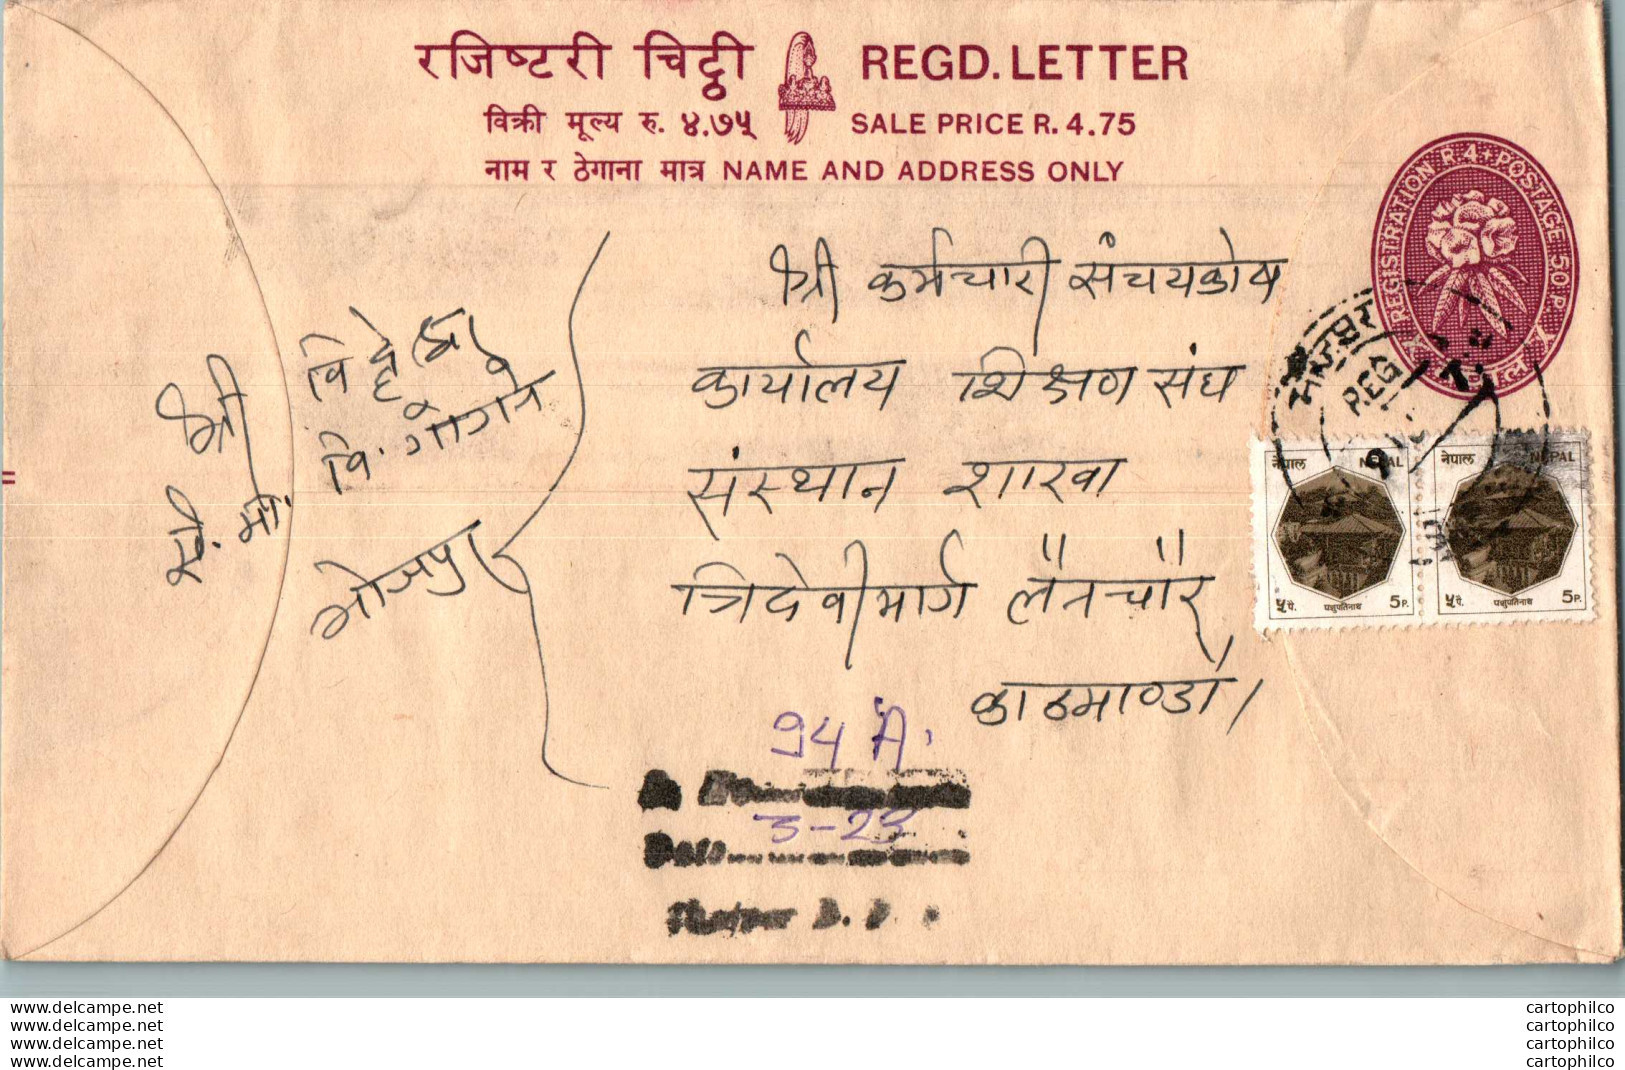 रजिष्टरी चिट्ठी REGD. LETTER
विक्री मूल्य रु. ४.७५ SALE PRICE R. 4.75
नाम र ठेगाना मात्र NAME AND ADDRESS ONLY
REGISTRATION R.4+POSTAGE 50 P.
श्री कर्मचारी संचयकोष
कार्यालय शिक्षण संघ
संस्थान शाखा
त्रिदेवीमार्ग लैनचौर
काठमाण्डौ।
श्री
भोजपुर
भोजपुर
REG
नेपाल NEPAL
५ पै. पशुपतिनाथ 5 P.
नेपाल NEPAL
५ पै. पशुपतिनाथ 5 P.
94 A.
3-23
Date
www.delcampe.net cartophilco
www.delcampe.net cartophilco
www.delcampe.net cartophilco
www.delcampe.net cartophilco